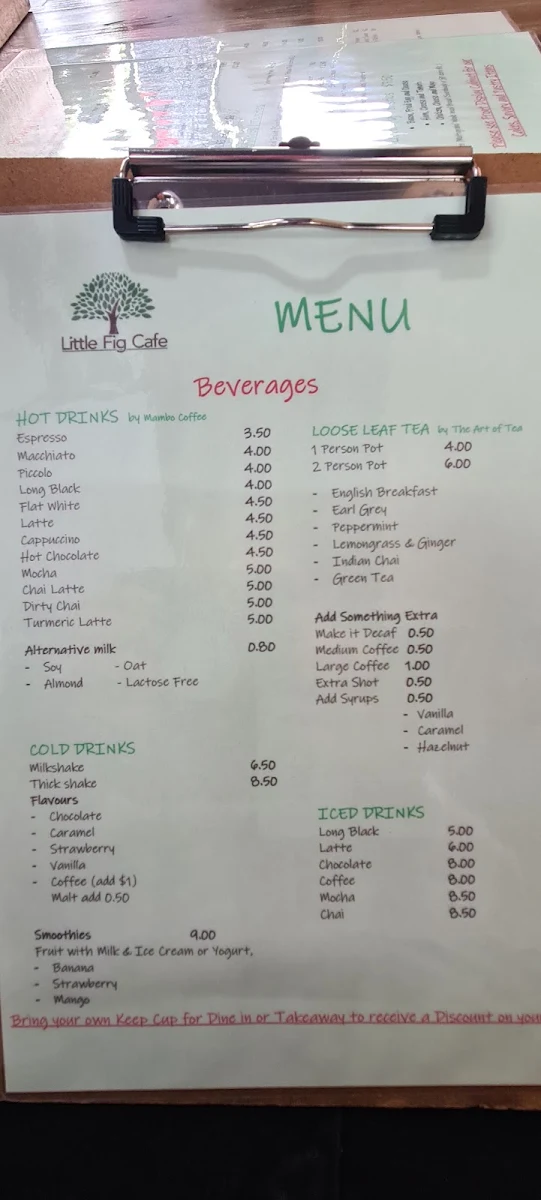 Little Fig Cafe
MENU
Beverages
HOT DRINKS by Mambo Coffee
Espresso 3.50
Macchiato 4.00
Piccolo 4.00
Long Black 4.00
Flat White 4.50
Latte 4.50
Cappuccino 4.50
Hot Chocolate 4.50
Mocha 5.00
Chai Latte 5.00
Dirty Chai 5.00
Turmeric Latte 5.00
Alternative milk 0.80
- Soy - Oat
- Almond - Lactose Free
COLD DRINKS
Milkshake 6.50
Thick shake 8.50
Flavours
- Chocolate
- Caramel
- Strawberry
- Vanilla
- Coffee (add $1)
Malt add 0.50
Smoothies 9.00
Fruit with Milk & Ice Cream or Yogurt,
- Banana
- Strawberry
- Mango
LOOSE LEAF TEA by The Art of Tea
1 Person Pot 4.00
2 Person Pot 6.00
- English Breakfast
- Earl Grey
- Peppermint
- Lemongrass & Ginger
- Indian Chai
- Green Tea
Add Something Extra
Make it Decaf 0.50
Medium Coffee 0.50
Large Coffee 1.00
Extra Shot 0.50
Add Syrups 0.50
- Vanilla
- Caramel
- Hazelnut
ICED DRINKS
Long Black 5.00
Latte 6.00
Chocolate 8.00
Coffee 8.00
Mocha 8.50
Chai 8.50
Bring your own Keep Cup for Dine in or Takeaway to receive a Discount on your